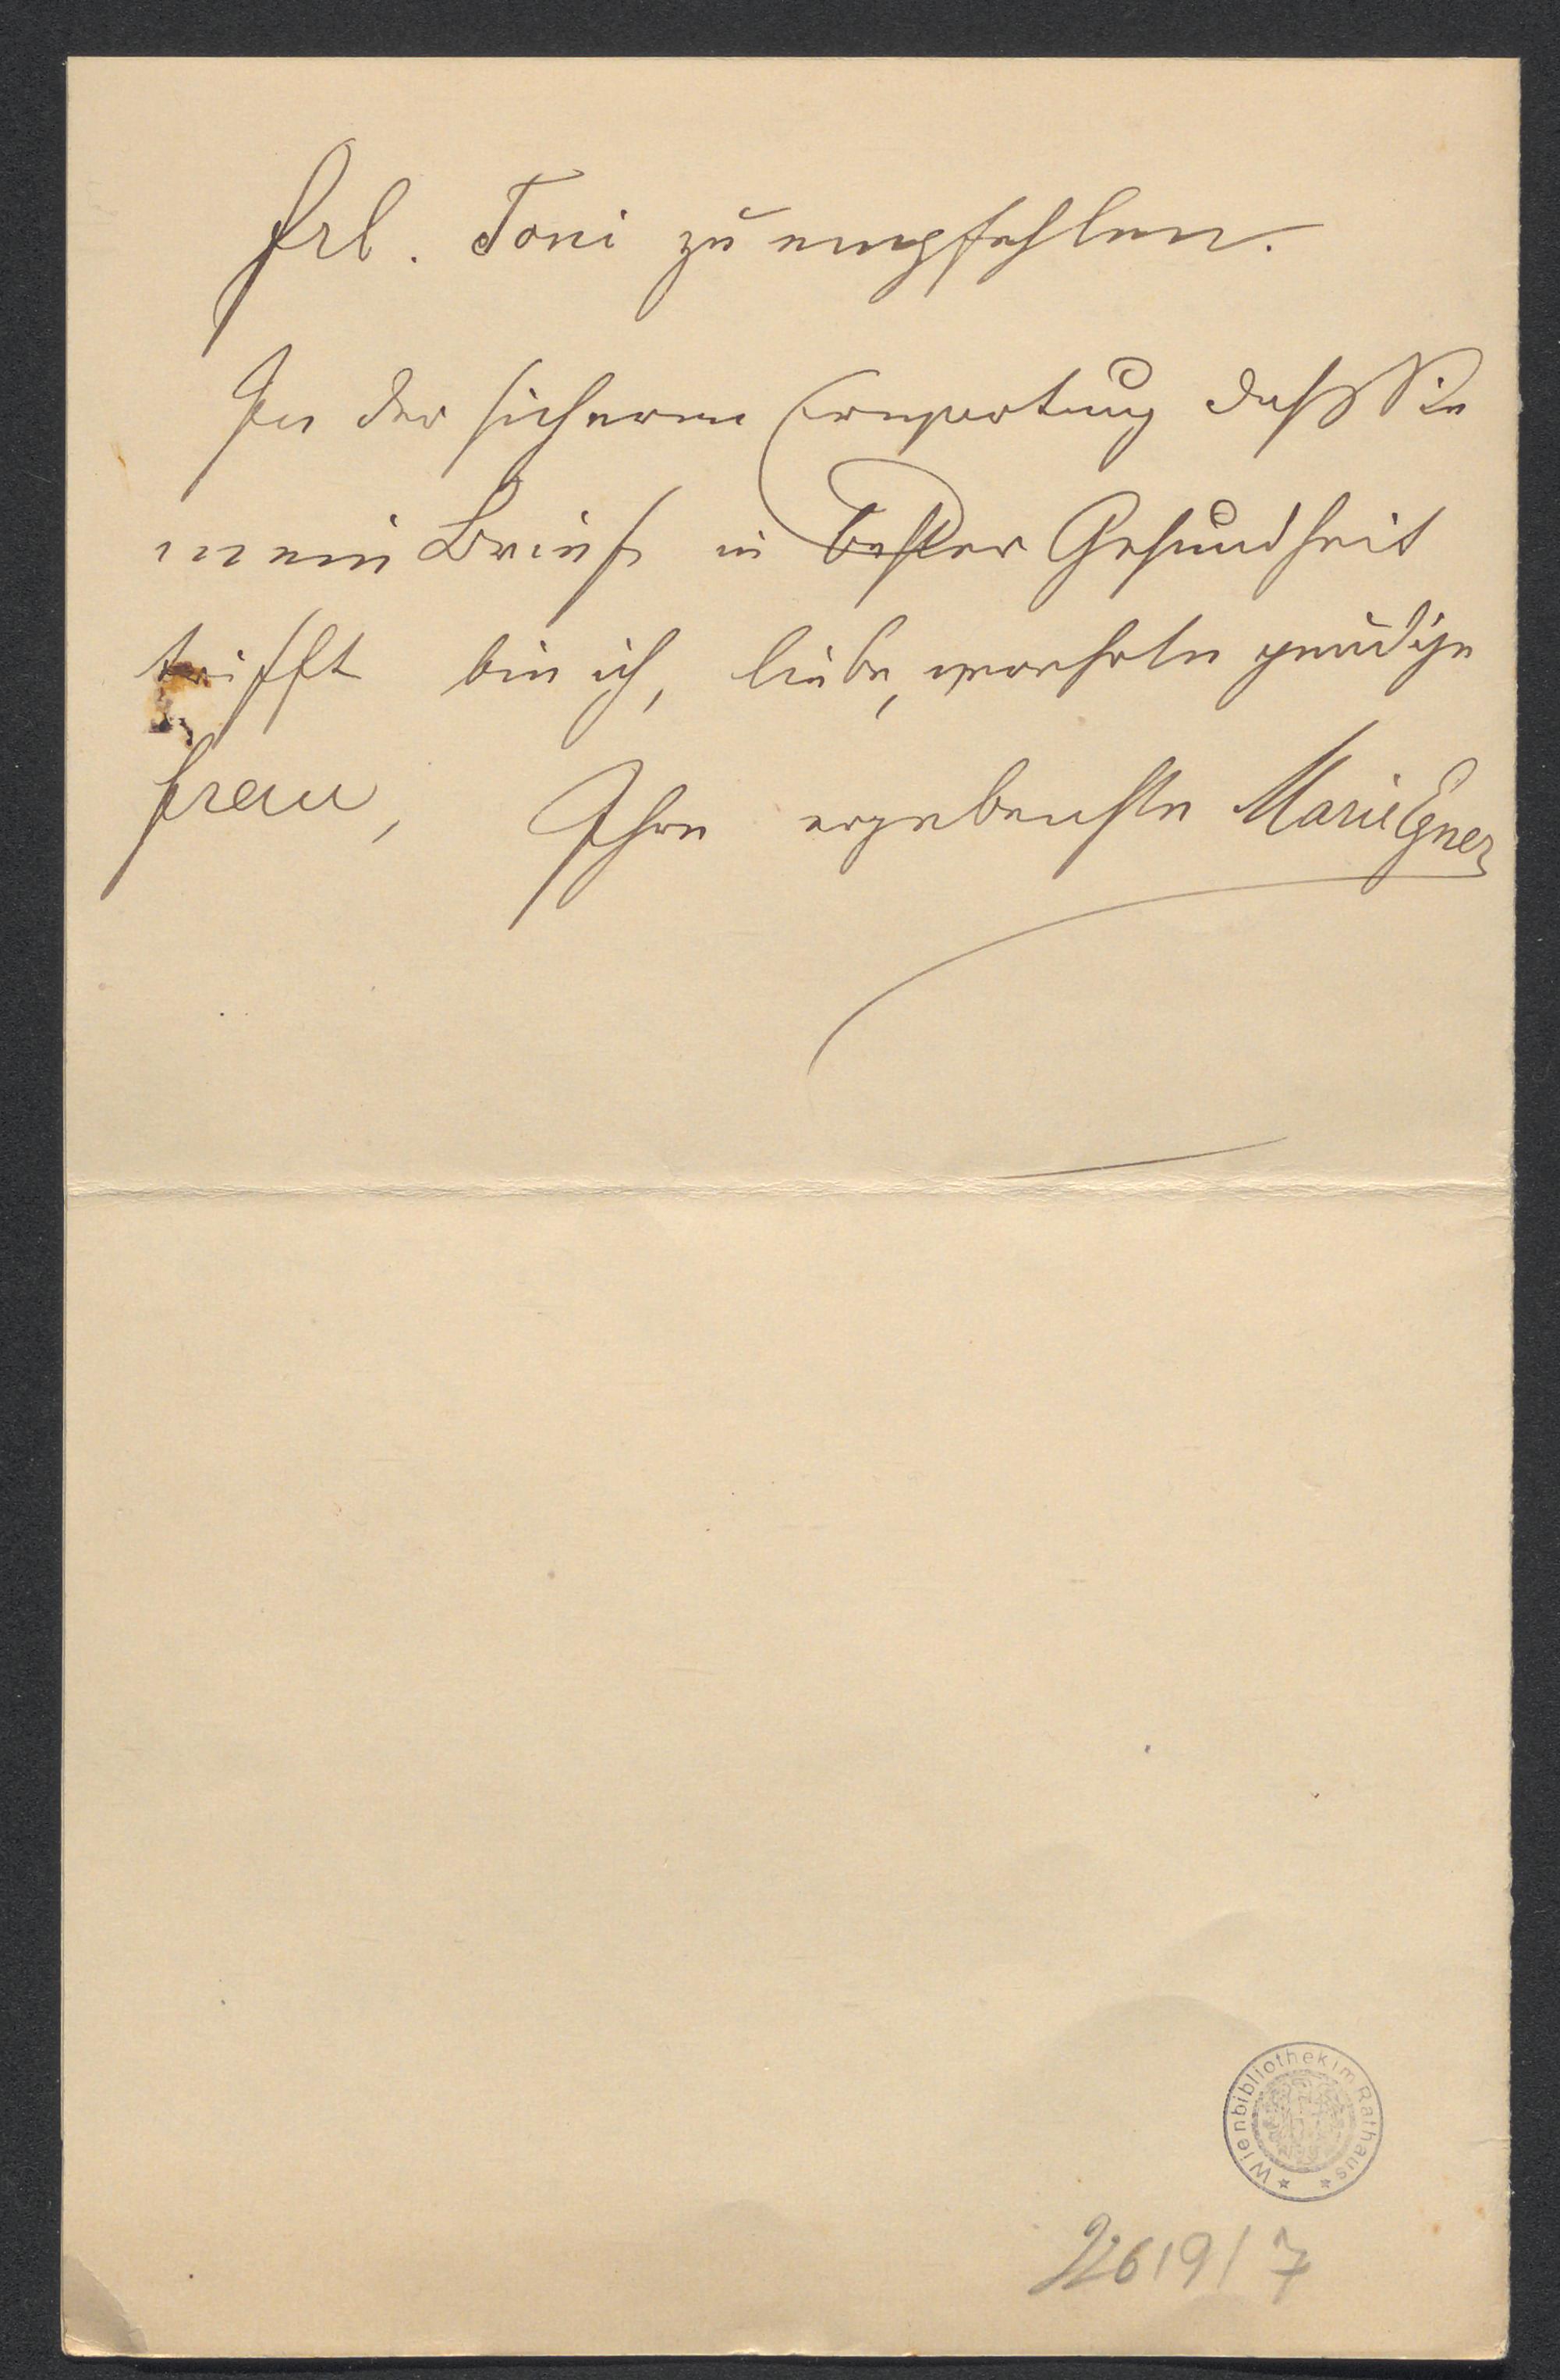 Frl. Toni zu empfehlen.
In der sicheren Erwartung daß Sie
mein Brief in bester Gesundheit
trifft bin ich, liebe, verehrte gnädige
Frau, Ihre ergebenste Marie Egner
Wienbibliothek im Rathaus
22619/7